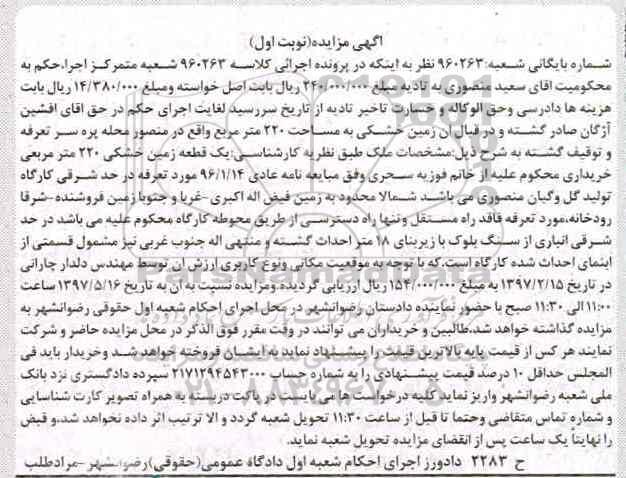 اگهی مزایده(نوبت اول)
شماره بایگانی شعبه:۹۶۰۲۶۳ نظر به اینکه در پرونده اجرائی کلاسه ۹۶۰۲۶۳ شعبه متمرکز اجرا،حکم به
محکومیت اقای سعید منصوری به تادیه مبلغ ۲۴۰/۰۰۰/۰۰۰ ریال بابت اصل خواسته ومبلغ ۱۴/۳۸۰/۰۰۰ ریال بابت
هزینه ها دادرسی وحق الوکاله و خسارت تاخیر تادیه از تاریخ سررسید لغایت اجرای حکم در حق اقای افشین
آژگان صادر گشته و در قبال آن زمین خشکی به مساحت ۲۲۰ متر مربع واقع در منصور محله پره سر تعرفه
و توقیف گشته به شرح ذیل:مشخصات ملک طبق نظریه کارشناسی:یک قطعه زمین خشکی ۲۲۰ متر مربعی
خریداری محکوم علیه از خانم فوزیه سحری وفق مبایعه نامه عادی ۹۶/۱/۱۴ مورد تعرفه در حد شرقی کارگاه
تولید گل وگیان منصوری می باشد شمالا محدود به زمین فیض اله اکبری -غربا و جنوبا زمین فروشنده -شرقا
رودخانه،مورد تعرفه فاقد راه مستقل وتنها راه دسترسی از طریق محوطه کارگاه محکوم علیه می باشد در حد
شرقی انباری از سنگ بلوک با زیربنای ۱۸ متر احداث گشته و منتهی اله جنوب غربی نیز مشمول قسمتی از
ابنمای احداث شده کارگاه است.که با توجه به موقعیت مکانی ونوع کاربری ارزش ان توسط مهندس دلدار چارانی
در تاریخ ۱۳۹۷/۲/۱۵ به مبلغ ۱۵۴/۰۰۰/۰۰۰ ریال ارزیابی گردیده.ومزایده نسبت به آن به تاریخ ۱۳۹۷/۵/۱۶ ساعت
۱۱:۰۰ الی ۱۱:۳۰ صبح با حضور نماینده دادستان رضوانشهر در محل اجرای احکام شعبه اول حقوقی رضوانشهر به
مزایده گذاشته خواهد شد.طالبین و خریداران می توانند در وقت مقرر فوق الذکر در محل مزایده حاضر و شرکت
نمایند هر کس از قیمت پایه بالاترین قیمت را پیشنهاد نماید به ایشان فروخته خواهد شد وخریدار باید فی
المجلس حداقل ۱۰ درصد قیمت پیشنهادی را به شماره حساب ۲۱۷۱۲۹۴۵۴۳۰۰۰ سپرده دادگستری نزد بانک
ملی شعبه رضوانشهر واریز نماید کلیه درخواست ها می بایست در پاکت دربسته به همراه تصویر کارت شناسایی
و شماره تماس متقاضی وحتما تا قبل از ساعت ۱۱:۳۰ تحویل شعبه گردد و الا ترتیب اثر داده نخواهد شد،و قبض
را نهایتاً یک ساعت پس از انقضای مزایده تحویل شعبه نماید.
ح ۲۲۸۳ دادورز اجرای احکام شعبه اول دادگاه عمومی(حقوقی)رضوانشهر -مرادطلب